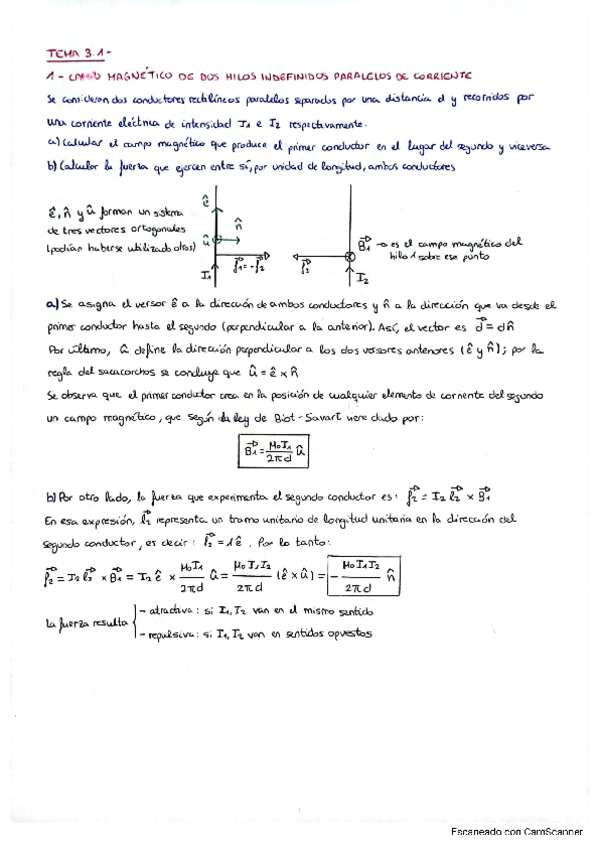 TEMA 3.1-
1 - CAMPO MAGNÉTICO DE DOS HILOS INDEFINIDOS PARALELOS DE CORRIENTE
Se consideran dos conductores rectilíneos paralelos separados por una distancia d y recorridos por
una corriente eléctrica de intensidad I1 e I2 respectivamente.
a) Calcular el campo magnético que produce el primer conductor en el lugar del segundo y viceversa
b) Calcular la fuerza que ejercen entre sí, por unidad de longitud, ambos conductores
ê, n̂ y û forman un sistema
de tres vectores ortogonales
(podían haberse utilizado otros)
ê
n̂
û
I1
f⃗1 = -f⃗2
f⃗2
I2
B⃗1 → es el campo magnético del
hilo 1 sobre ese punto
a) Se asigna el versor ê a la dirección de ambos conductores y n̂ a la dirección que va desde el
primer conductor hasta el segundo (perpendicular a la anterior). Así, el vector es d⃗ = d n̂
Por último, û define la dirección perpendicular a los dos versores anteriores (ê y n̂); por la
regla del sacacorchos se concluye que û = ê x n̂
Se observa que el primer conductor crea en la posición de cualquier elemento de corriente del segundo
un campo magnético, que según la ley de Biot-Savart viene dado por:
B⃗1 = μ0 I1 / 2πd û
b) Por otro lado, la fuerza que experimenta el segundo conductor es: f⃗2 = I2 l⃗2 x B⃗1
En esa expresión, l⃗2 representa un tramo unitario de longitud unitaria en la dirección del
segundo conductor, es decir: l⃗2 = 1ê. Por lo tanto:
f⃗2 = I2 l⃗2 x B⃗1 = I2 ê x μ0 I1 / 2πd û = μ0 I1 I2 / 2πd (ê x û) = - μ0 I1 I2 / 2πd n̂
La fuerza resulta
- atractiva: si I1, I2 van en el mismo sentido
- repulsiva: si I1, I2 van en sentidos opuestos
Escaneado con CamScanner